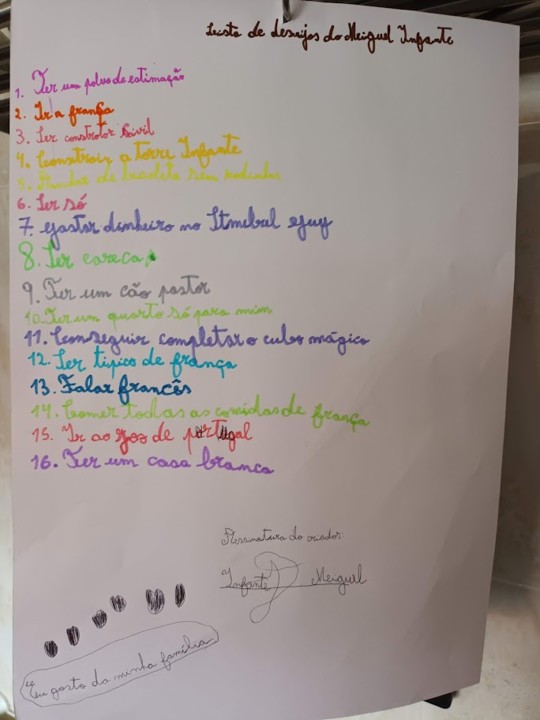 Lista de desejos do Meiguel Infante
1. Ter um polvo de estimação
2. Ir a frança
3. Ser constrotor sivil
4. Construir a torre Infante
5. de bicicleta sem rodinhas
6. Ser só
7. gastar dinheiro no
8. Ser careca
9. Ter um cão pastor
10. Ter um quarto só para mim
11. Conseguir completar o cubo mágico
12. Ser tipico de frança
13. Falar francês
14. Comer todas as comidas de frança
15. Ir ao de
16. Ter um casa branca
Assinatura do criador:
Infante Meiguel
"eu gosto da minha família"